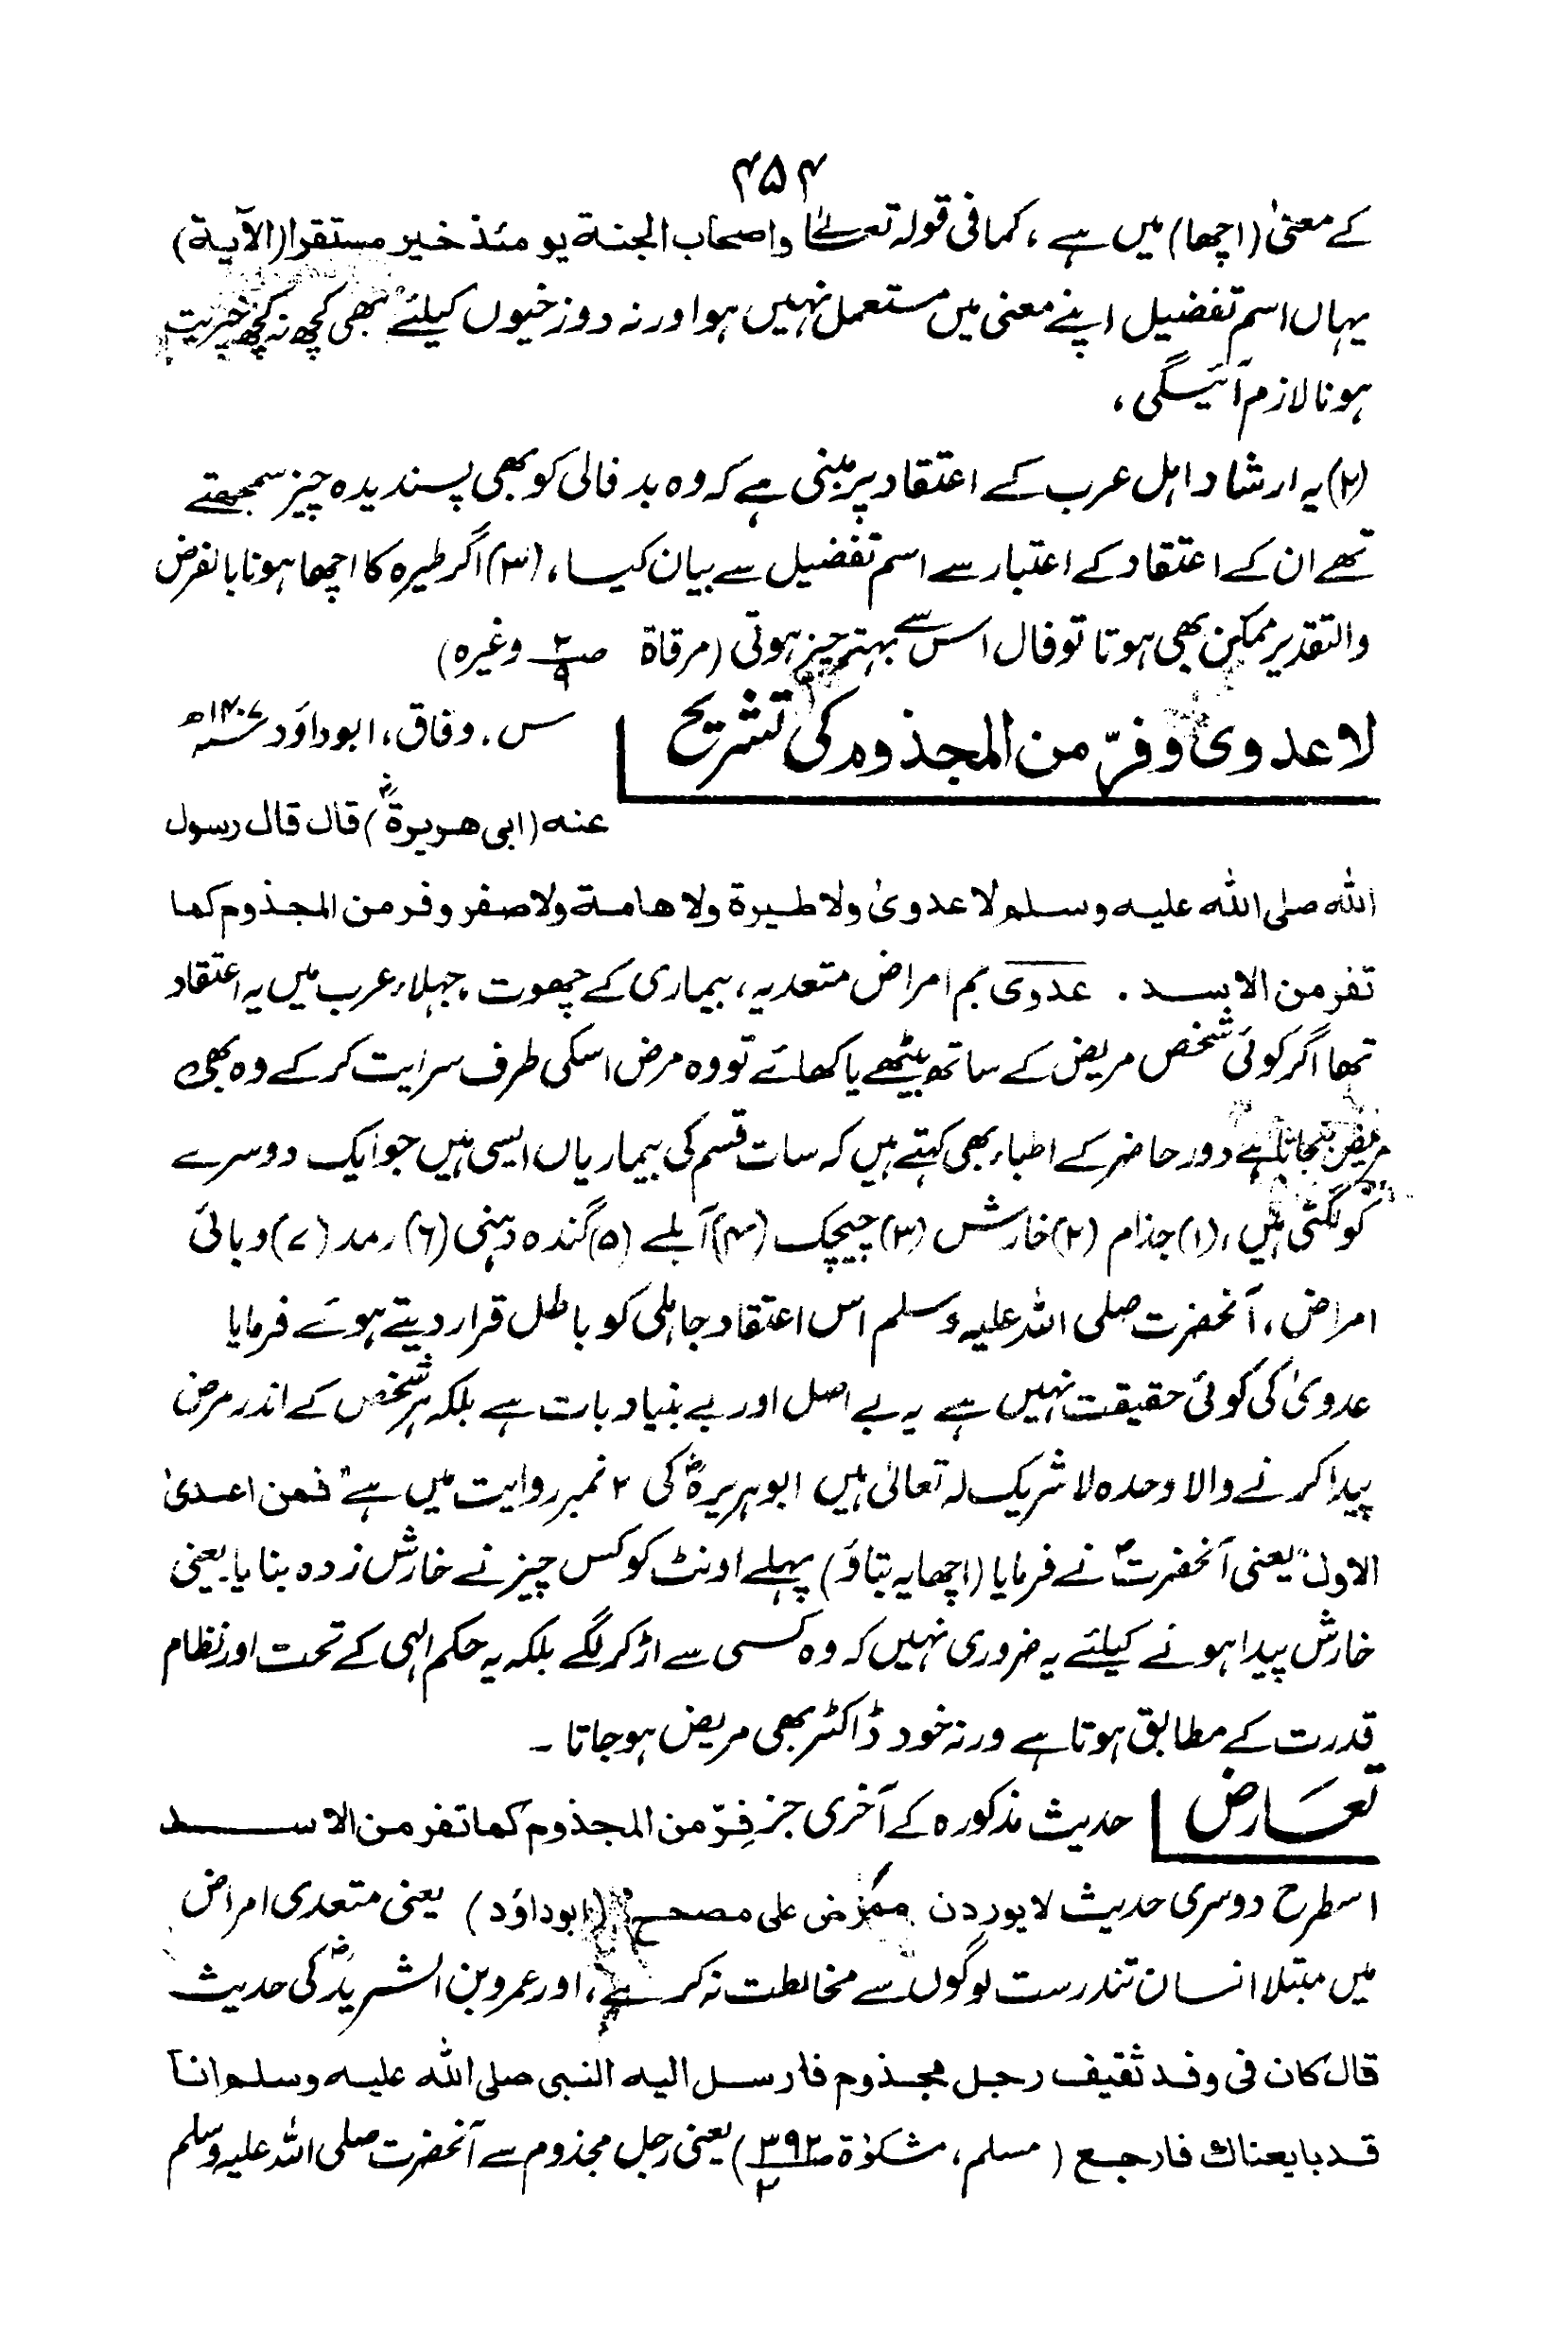 ۴۵۴
کے معنیٰ (اچھا) میں ہے ، کما فی قولہ تعالےٰ واصحاب الجنۃ یومئذ خیر مستقرا (الآیۃ)
یہاں اسم تفضیل اپنے معنی میں مستعمل نہیں ہوا ورنہ دوزخیوں کیلئے بھی کچھ نہ کچھ خیریت
ہونا لازم آئیگی ،
(۲) یہ ارشاد اہل عرب کے اعتقاد پر مبنی ہے کہ وہ بد فالی کو بھی پسندیدہ چیز سمجھتے
تھے ان کے اعتقاد کے اعتبار سے اسم تفضیل سے بیان کیا ، (۳) اگر طیرہ کا اچھا ہونا بالفرض
والتقدیر ممکن بھی ہوتا تو فال اس سے بہتر چیز ہوتی (مرقاۃ ص۲/۹ وغیرہ)
لا عدویٰ وفرّ من المجذوم کی تشریح
س ، وفاق ، ابوداؤد سنہ ۱۴۰۷ھ
عنہ (ابی ھریرۃؓ) قال قال رسول
اللہ صلی اللہ علیہ وسلم لا عدویٰ ولا طیرۃ ولا ھامۃ ولا صفر وفر من المجذوم کما
تفر من الاسد ۔ عدوی بم امراض متعدیہ ، بیماری کے چھوت ، جہلاء عرب میں یہ اعتقاد
تھا اگر کوئی شخص مریض کے ساتھ بیٹھے یا کھائے تو وہ مرض اسکی طرف سرایت کر کے وہ بھی
مریض بنجاتا ہے دور حاضر کے اطباء بھی کہتے ہیں کہ سات قسم کی بیماریاں ایسی ہیں جو ایک دوسرے
کو لگتی ہیں ، (۱) جذام (۲) خارش (۳) چیچک (۴) آبلے (۵) گندہ دہنی (۶) رمد (۷) وبائی
امراض ، آنحضرت صلی اللہ علیہ وسلم اس اعتقاد جاہلی کو باطل قرار دیتے ہوئے فرمایا
عدویٰ کی کوئی حقیقت نہیں ہے یہ بے اصل اور بے بنیاد بات ہے بلکہ ہر شخص کے اندر مرض
پیدا کرنے والا وحدہ لا شریک لہ تعالیٰ ہیں ابوہریرہؓ کی ۲ نمبر روایت میں ہے "فمن اعدیٰ
الاول" یعنی آنحضرتؐ نے فرمایا (اچھا یہ بتاؤ) پہلے اونٹ کو کس چیز نے خارش زدہ بنایا یعنی
خارش پیدا ہونے کیلئے یہ ضروری نہیں کہ وہ کسی سے اڑ کر لگے بلکہ یہ حکم الٰہی کے تحت اور نظام
قدرت کے مطابق ہوتا ہے ورنہ خود ڈاکٹر بھی مریض ہو جاتا ۔
تعَارض
حدیث مذکورہ کے آخری جز فِرّ من المجذوم کما تفر من الاسد
اسطرح دوسری حدیث لا یوردن ممرض علی مصحح (ابوداؤد) یعنی متعدی امراض
میں مبتلا انسان تندرست لوگوں سے مخالطت نہ کرے ، اور عمرو بن الشریدؓ کی حدیث
قال کان فی وفد ثقیف رجل مجذوم فارسل الیہ النبی صلی اللہ علیہ وسلم انا
قد بایعناك فارجع (مسلم ، مشکوٰۃ ص۳۹۲/۲) یعنی رجل مجذوم سے آنحضرت صلی اللہ علیہ وسلم